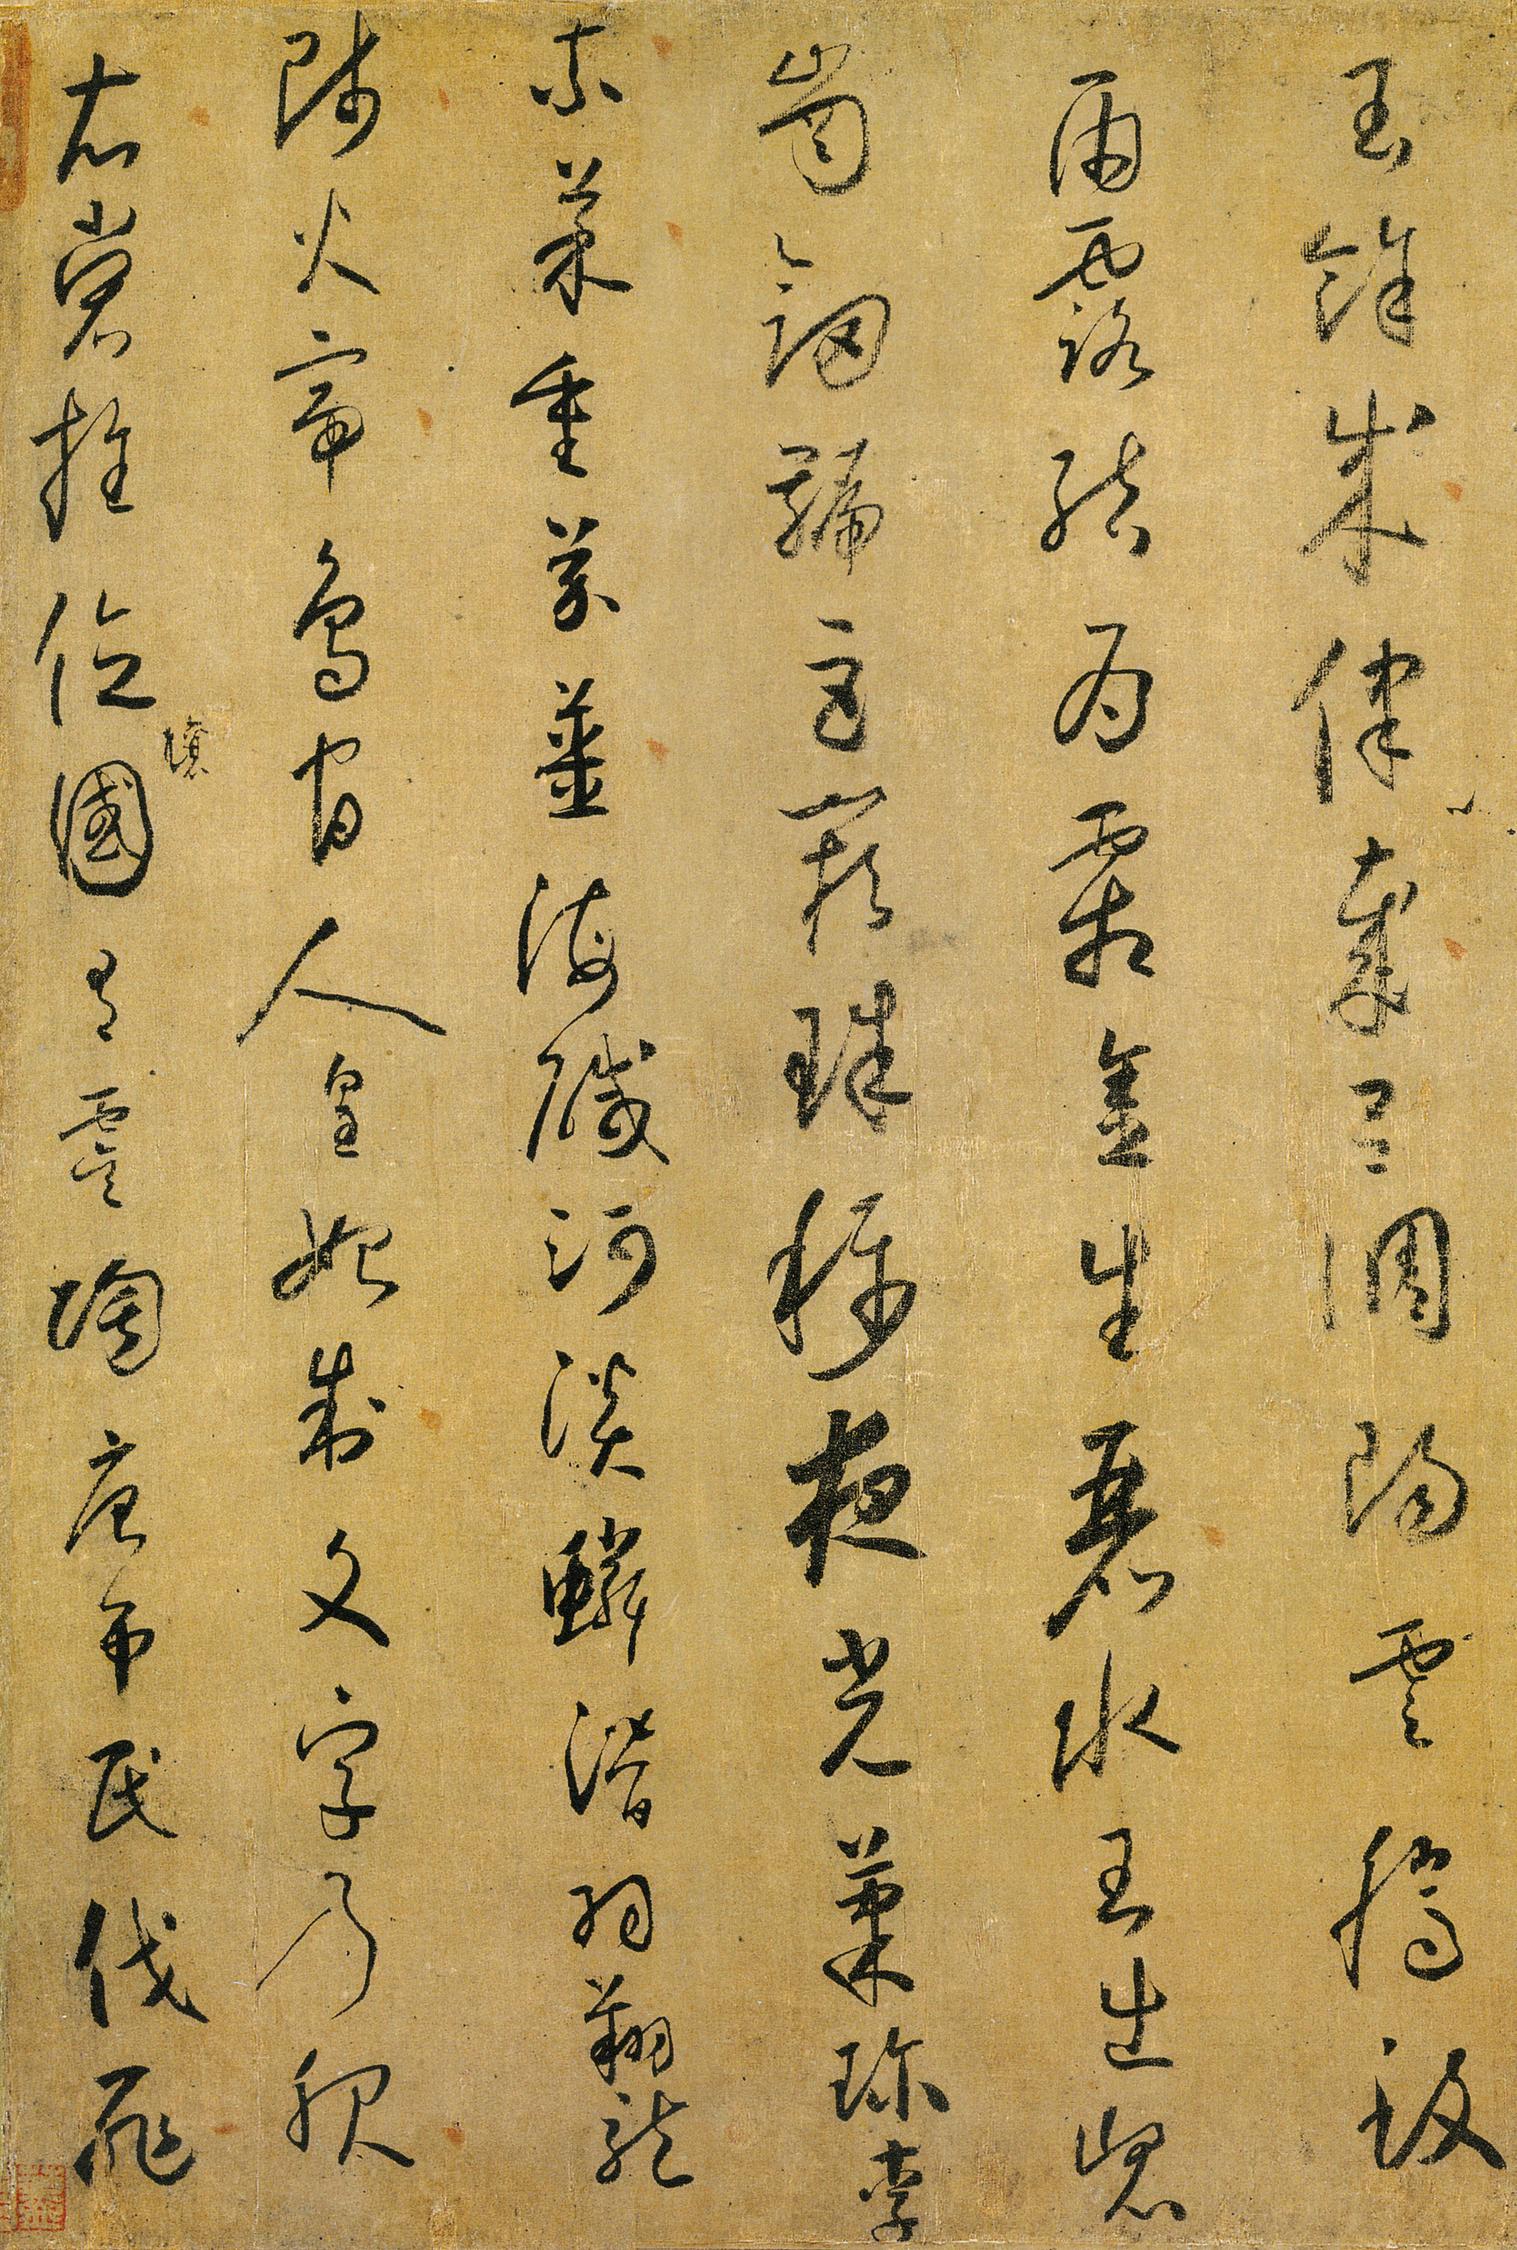 閏餘成律歲呂調陽雲騰致
雨露結為霜金生麗水玉出崑
崗劍號巨闕珠稱夜光菓珍李
柰菜重芥薑海醎河淡鱗潛羽翔龍
師火帝鳥官人皇始制文字乃服
衣裳推位讓國有虞陶唐弔民伐罪